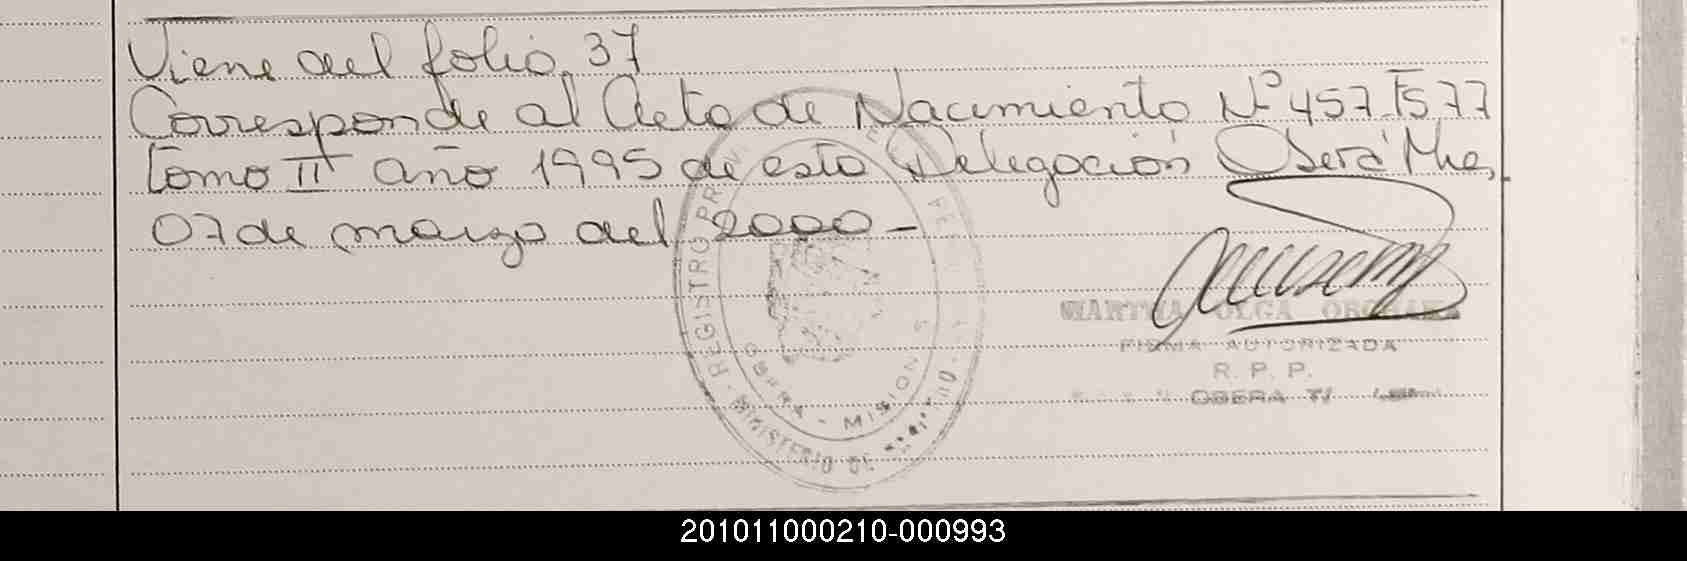 Viene del folio 37
Corresponde al Acta de Nacimiento Nº 457 T 577
Tomo II año 1995 de esta Delegación Oberá Mnes,
07 de marzo del 2000 -
REGISTRO PR
OBERA - MISIONES
MINISTERIO DE
MARTHA OLGA
FIRMA AUTORIZADA
R. P. P.
OBERA
201011000210-000993